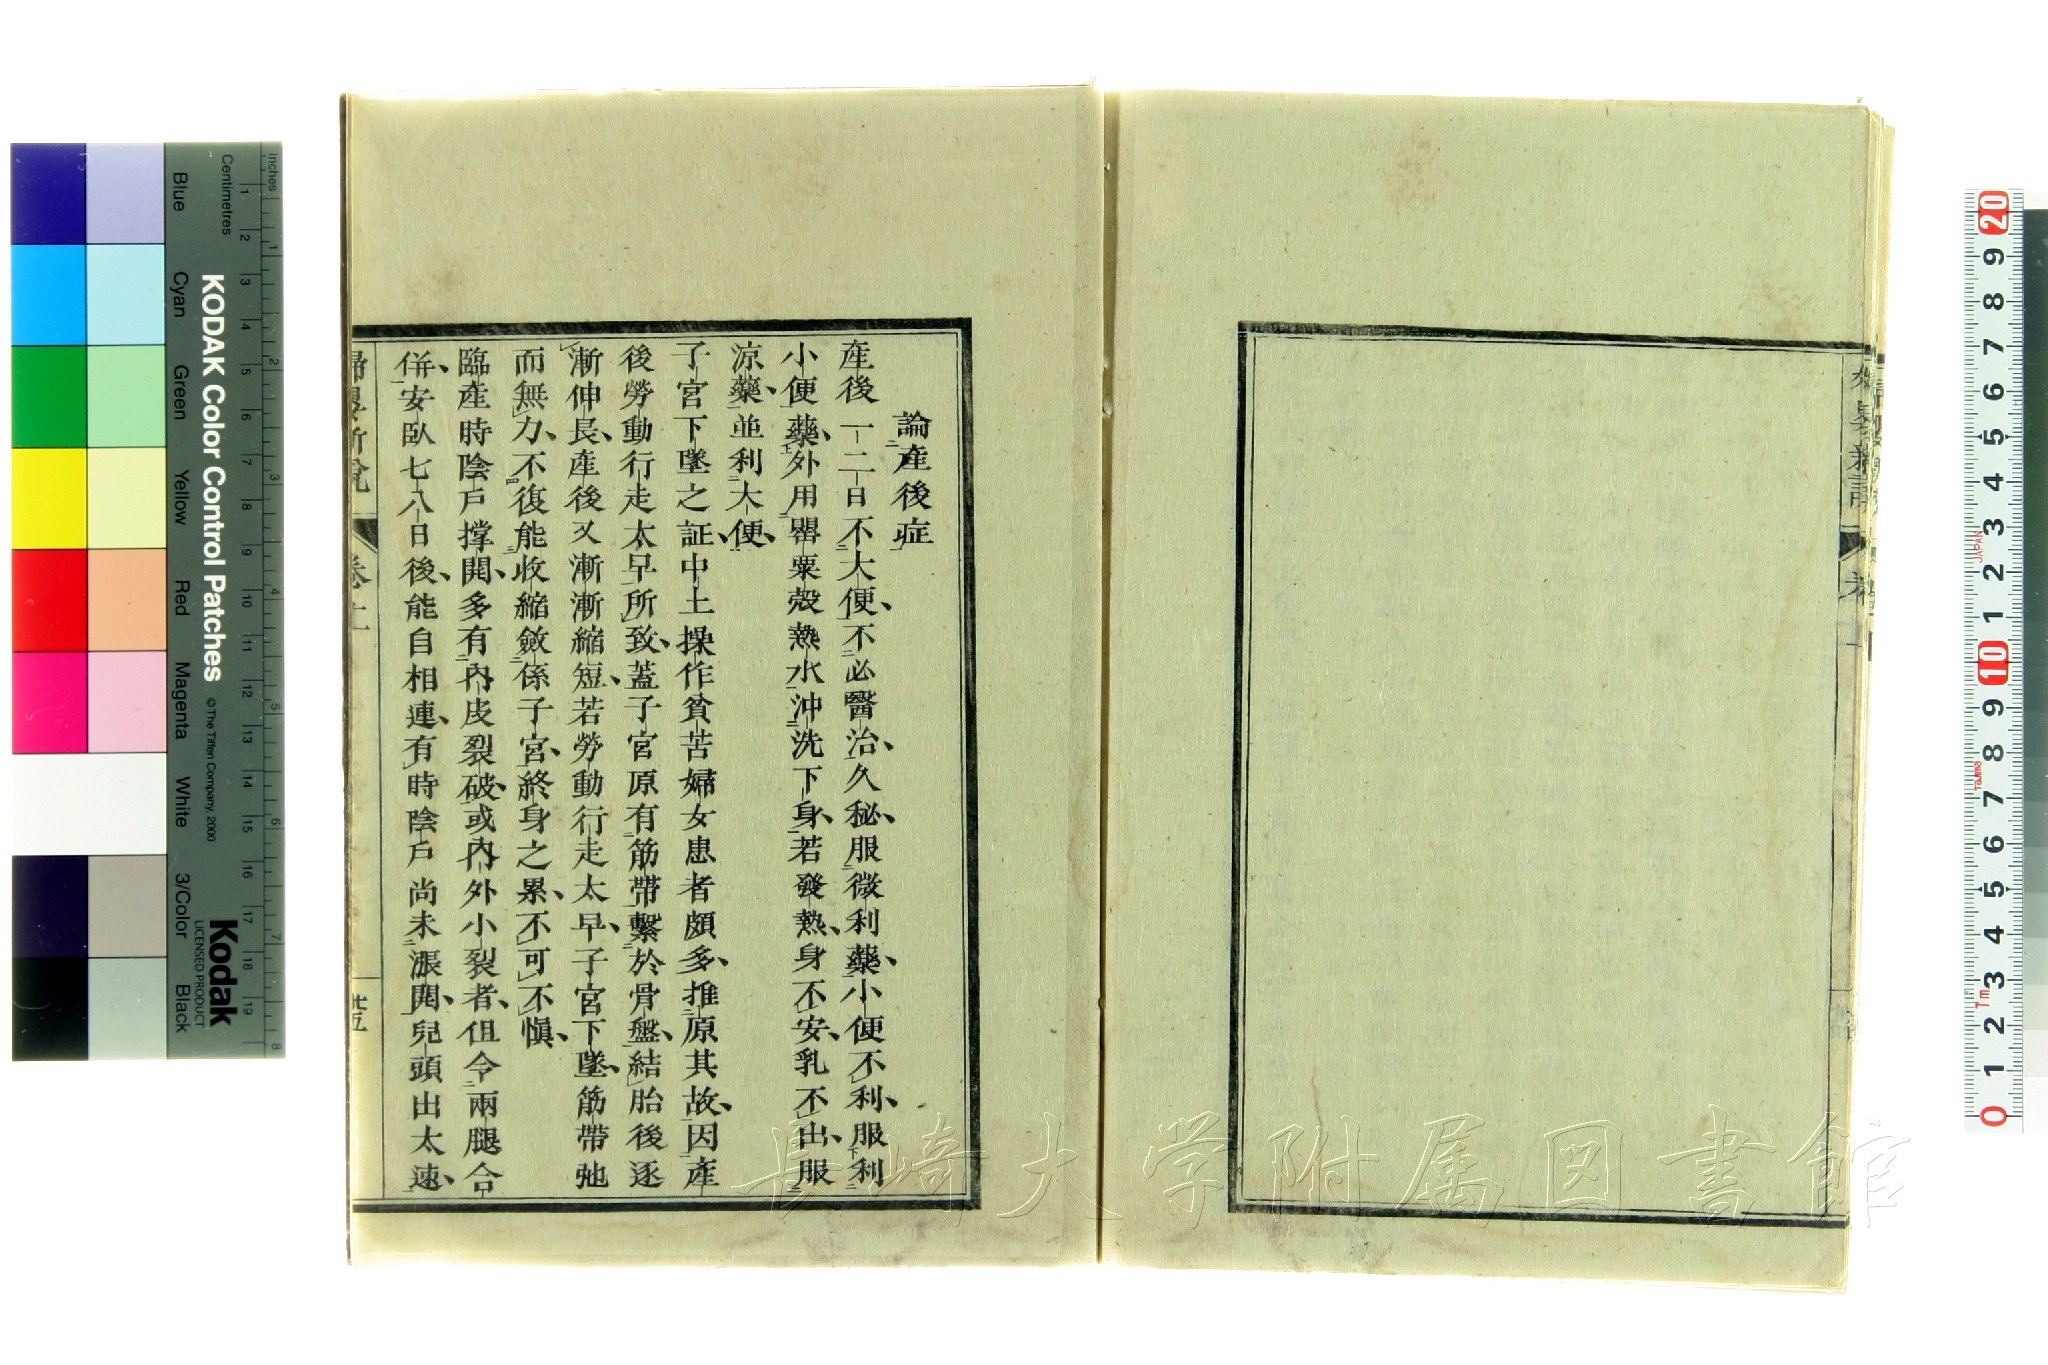 論產後症
產後一二日不大便、不必醫治、久秘、服微利藥、小便不利、服利
小便藥、外用罌粟殼熱水沖洗下身、若發熱、身不安、乳不出、服
涼藥、並利大便、
子宮下墜之証中土操作貧苦婦女患者頗多、推原其故、因產
後勞動行走太早所致、蓋子宮原有筋帶繫於骨盤、結胎後逐
漸伸長、產後又漸漸縮短、若勞動行走太早、子宮下墜、筋帶弛
而無力、不復能收縮斂係子宮、終身之累、不可不慎、
臨產時陰戶撐開、多有內皮裂破、或內外小裂者、但令兩腿合
併、安臥七八日後、能自相連、有時陰戶尚未漲開、兒頭出太速、
婦嬰新說
卷上
廿五
長崎大学附属図書館
KODAK Color Control Patches
© The Tiffen Company, 2000
Kodak
LICENSED PRODUCT
Inches
Centimetres
Blue
Cyan
Green
Yellow
Red
Magenta
White
3/Color
Black
1 2 3 4 5 6 7 8 9 10 11 12 13 14 15 16 17 18 19
1 2 3 4 5 6 7 8
20 9 8 7 6 5 4 3 2 1 10 9 8 7 6 5 4 3 2 1 0
JAPAN
Tajima
Tm